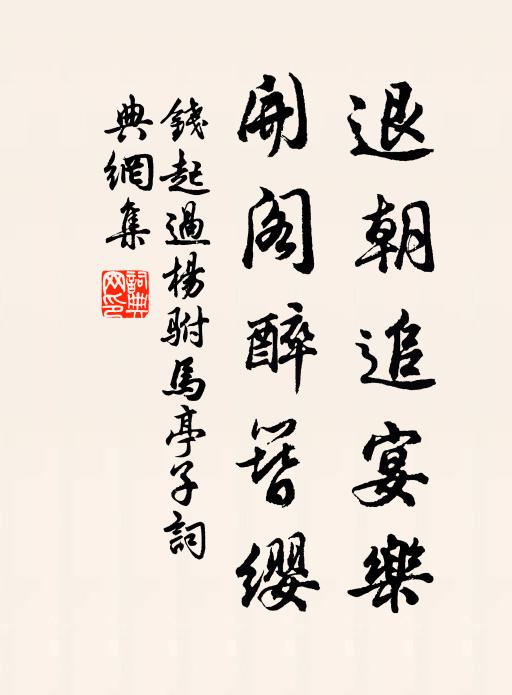 退朝追宴樂
開閣醉簪纓
錢起過楊駙馬亭子詞
典網集
詞典
网印